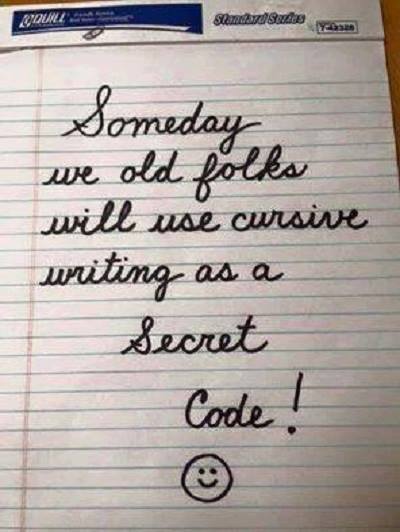 QUILL Standard Series
Someday
we old folks
will use cursive
writing as a
Secret
Code!